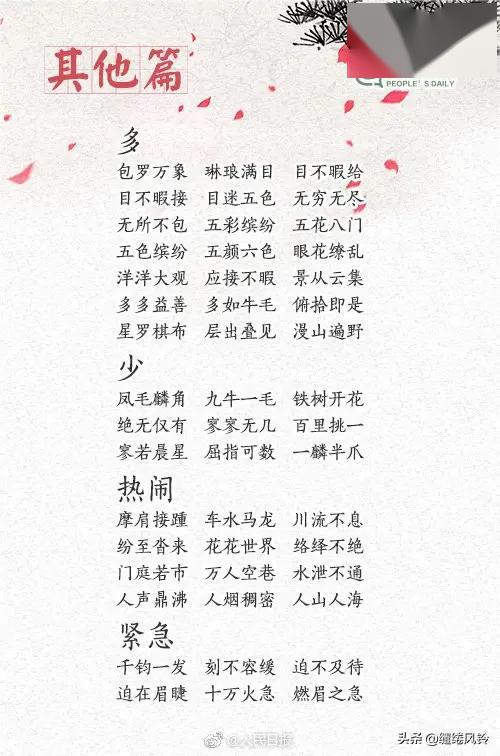 其他篇
PEOPLE'S DAILY
多
包罗万象 琳琅满目 目不暇给
目不暇接 目迷五色 无穷无尽
无所不包 五彩缤纷 五花八门
五色缤纷 五颜六色 眼花缭乱
洋洋大观 应接不暇 景从云集
多多益善 多如牛毛 俯拾即是
星罗棋布 层出叠见 漫山遍野
少
凤毛麟角 九牛一毛 铁树开花
绝无仅有 寥寥无几 百里挑一
寥若晨星 屈指可数 一鳞半爪
热闹
摩肩接踵 车水马龙 川流不息
纷至沓来 花花世界 络绎不绝
门庭若市 万人空巷 水泄不通
人声鼎沸 人烟稠密 人山人海
紧急
千钧一发 刻不容缓 迫不及待
迫在眉睫 十万火急 燃眉之急
@人民日报
头条 @缠绕风铃